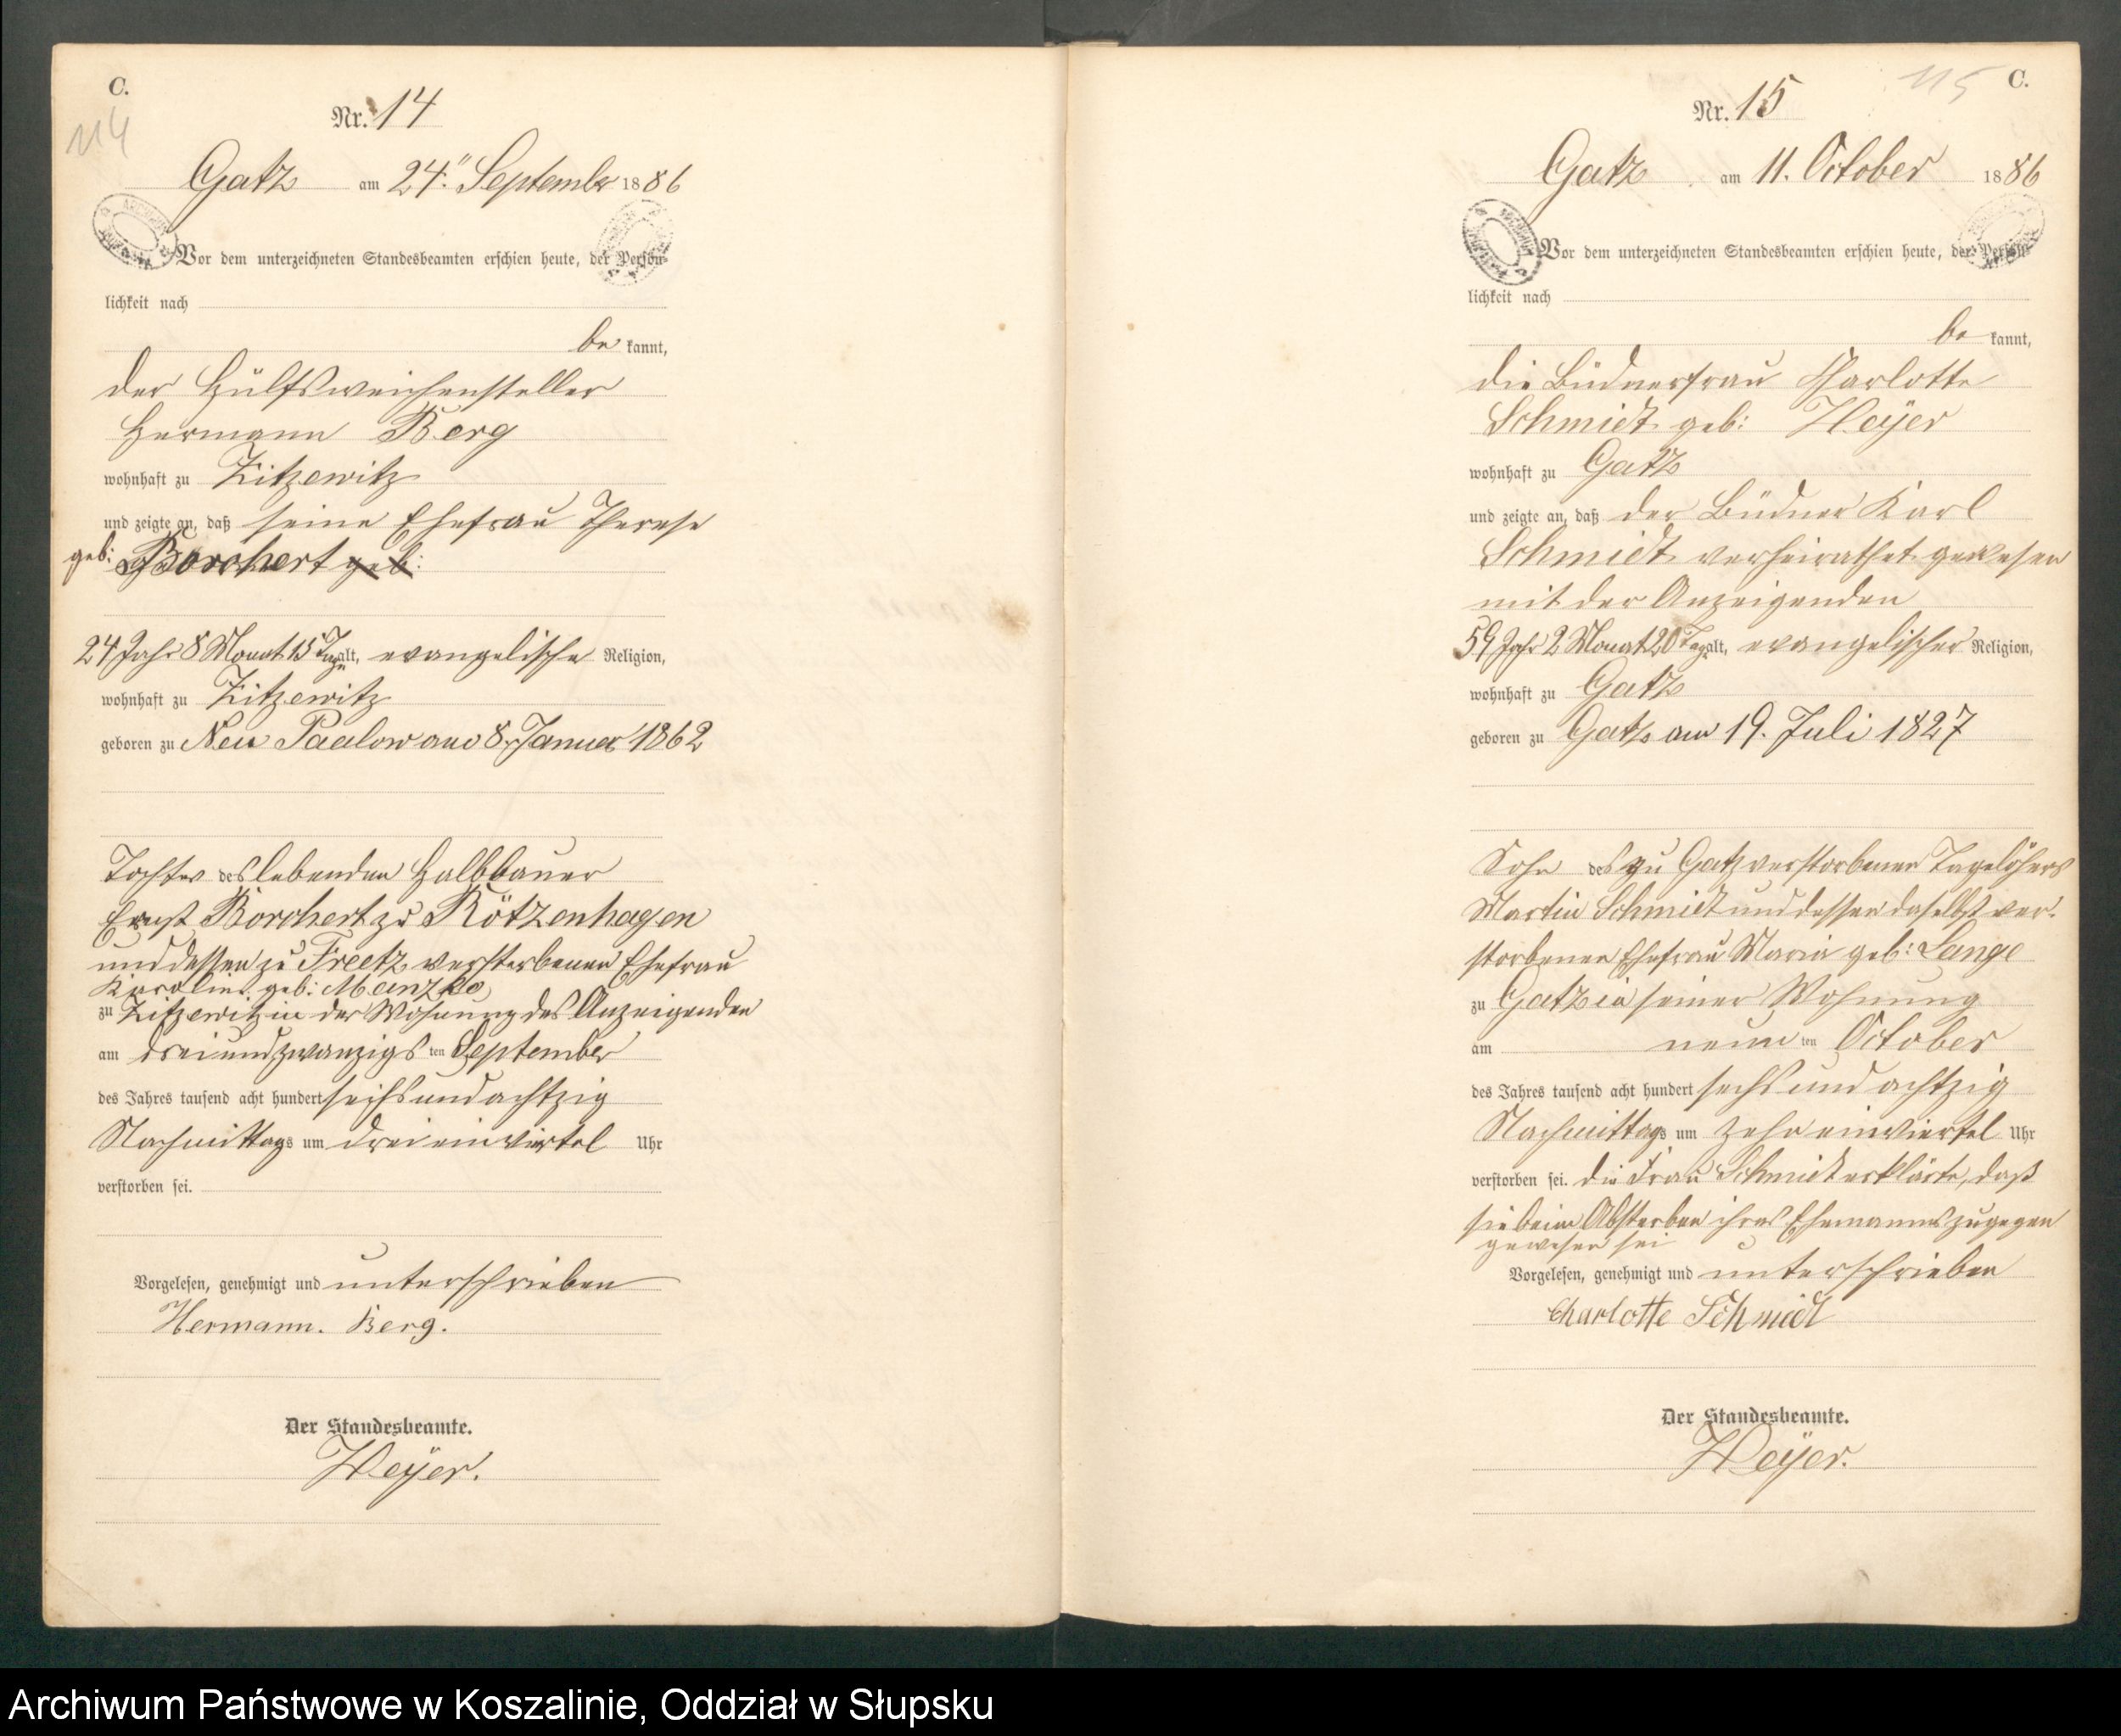 C.
114
Nr. 14
Gatz am 24. September 1886
Vor dem unterzeichneten Standesbeamten erschien heute, der Persön-
lichkeit nach
be kannt,
der Hülfsweichensteller
Hermann Berg
wohnhaft zu Zitzewitz
und zeigte an, daß seine Ehefrau Therese
geb: Borchert geb:
24 Jahr 8 Monat 15 Tage alt, evangelische Religion,
wohnhaft zu Zitzewitz
geboren zu Neu Paalow am 8. Januar 1862
Tochter des lebenden Halbbauer
Ernst Borchert zu Kötzenhagen
und dessen zu Freetz verstorbenen Ehefrau
Karoline geb: Manzke
zu Zitzewitz in der Wohnung des Anzeigenden
am dreiundzwanzigs ten September
des Jahres tausend acht hundert sechs und achtzig
Nachmittags um drei einviertel Uhr
verstorben sei.
Vorgelesen, genehmigt und unterschrieben
Hermann. Berg.
Der Standesbeamte.
Heÿer.
115
C.
Nr. 15
Gatz am 11. October 1886
Vor dem unterzeichneten Standesbeamten erschien heute, der Persön-
lichkeit nach
be kannt,
die Büdnerfrau Charlotte
Schmidt geb: Heÿer
wohnhaft zu Gatz
und zeigte an, daß der Büdner Karl
Schmidt verheirathet gewesen
mit der Anzeigenden
59 Jahr 2 Monat 20 Tag alt, evangelischer Religion,
wohnhaft zu Gatz
geboren zu Gatz am 19. Juli 1827
Sohn des zu Gatz verstorbenen Tagelöhners
Martin Schmidt und dessen daselbst ver-
storbenen Ehefrau Maria geb: Lange
zu Gatz in seiner Wohnung
am neun ten October
des Jahres tausend acht hundert sechs und achtzig
Nachmittags um zehn einviertel Uhr
verstorben sei. die Frau Schmidt erklärte, daß
sie beim Absterben ihres Ehemannes zugegen
gewesen sei
Vorgelesen, genehmigt und unterschrieben
Charlotte Schmidt
Der Standesbeamte.
Heÿer.
Archiwum Państwowe w Koszalinie, Oddział w Słupsku